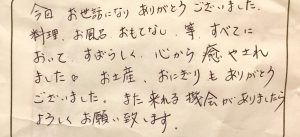 今回 お世話になり ありがとう ございました.
料理、お風呂 おもてなし、等 すべてに
おいて、すばらしく、心から 癒やされ
ました。 お土産、おにぎりも ありがとう
ございました。 また 来れる 機会が ありましたら
よろしく お願い致します.